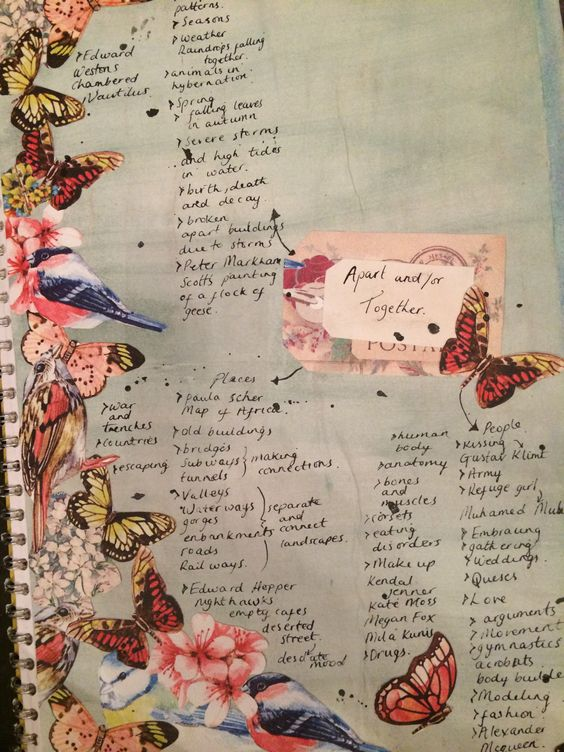 patterns.
> Seasons
> Weather
Raindrops falling
together.
> animals in
hybernation.
> Spring
falling leaves
in autumn
> Severe storms
and high tides
in water.
> birth, death
and decay.
> broken
apart buildings
due to storms
> Peter Markham
Scotts painting
of a flock of
geese.
> Edward
Westons
Chambered
Nautilus.
Apart and/or
Together.
POSTA
Places
> paula scher
Map of Africa.
> old buildings
> bridges
Subways
tunnels
making
connections.
> Valleys
Water ways
gorges
enbankments
roads
Rail ways.
separate
and
connect
landscapes.
> Edward Hopper
nighthawks
empty cafes
deserted
street.
desolate
mood
> war
and
trenches
> countries
> escaping
> human
body
> anatomy
> bones
and
muscles
> corsets
> eating
disorders
> Make up
Kendal
Jenner
Kate Moss
Megan Fox
Mila Kunis
> Drugs.
People
> Kissing
Gustav Klimt
> Army
> Refuge girl
Muhamed
> Embracing
> gathering
> Weddings
> Queues
> Love
> arguments
> Movement
> gymnastics
acrobats
body builde
> Modeling
> fashion
> Alexander
Mcqueen.